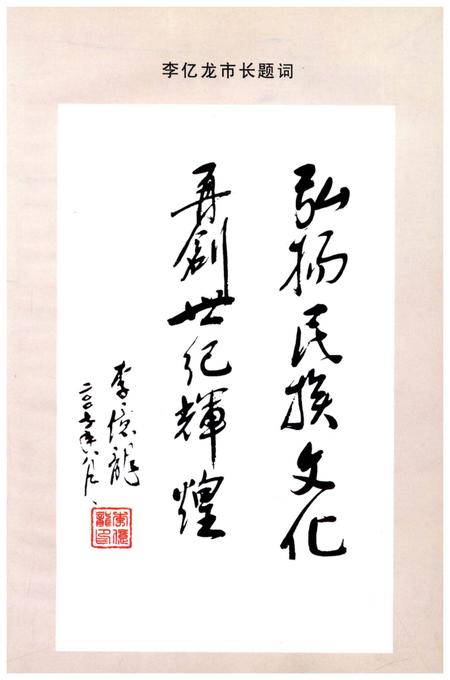 李亿龙市长题词
弘扬民族文化
再創世纪輝煌
李億龍
二00七年八月
李億龍印